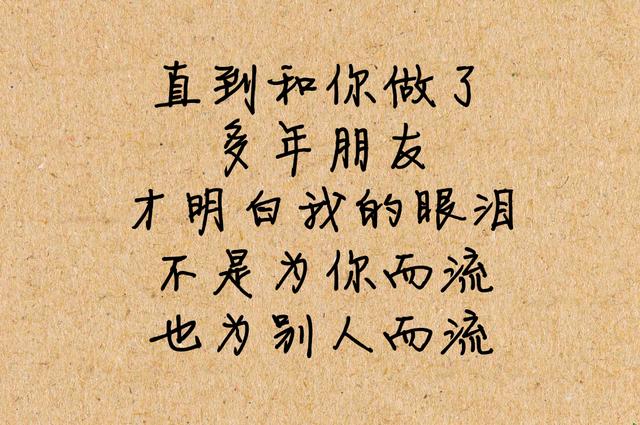 直到和你做了
多年朋友
才明白我的眼泪
不是为你而流
也为别人而流